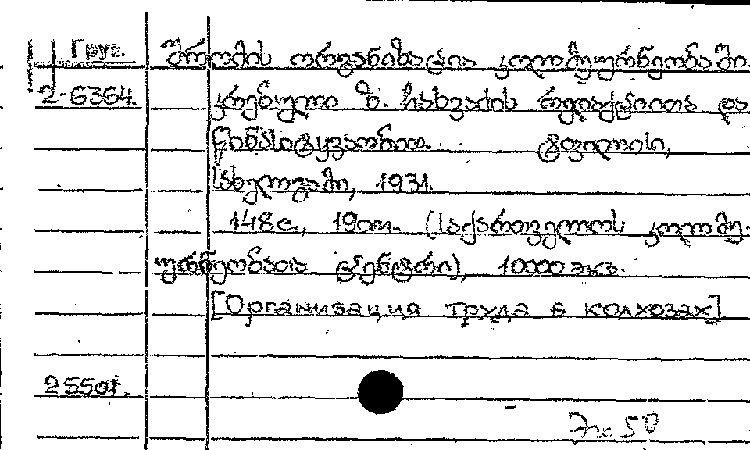 Груз. შრომის ორგანიზაცია კოლმეურნეობაში.
2-6364. კრებული ზ. ჩახვაძის რედაქციითა და
წინასიტყვაობით. ტფილისი,
სახელგამი, 1931.
148с., 19см. (საქართველოს კოლმე-
ურნეობათა ცენტრი), 10000 экз.
[Организация труда в колхозах]
2550г.